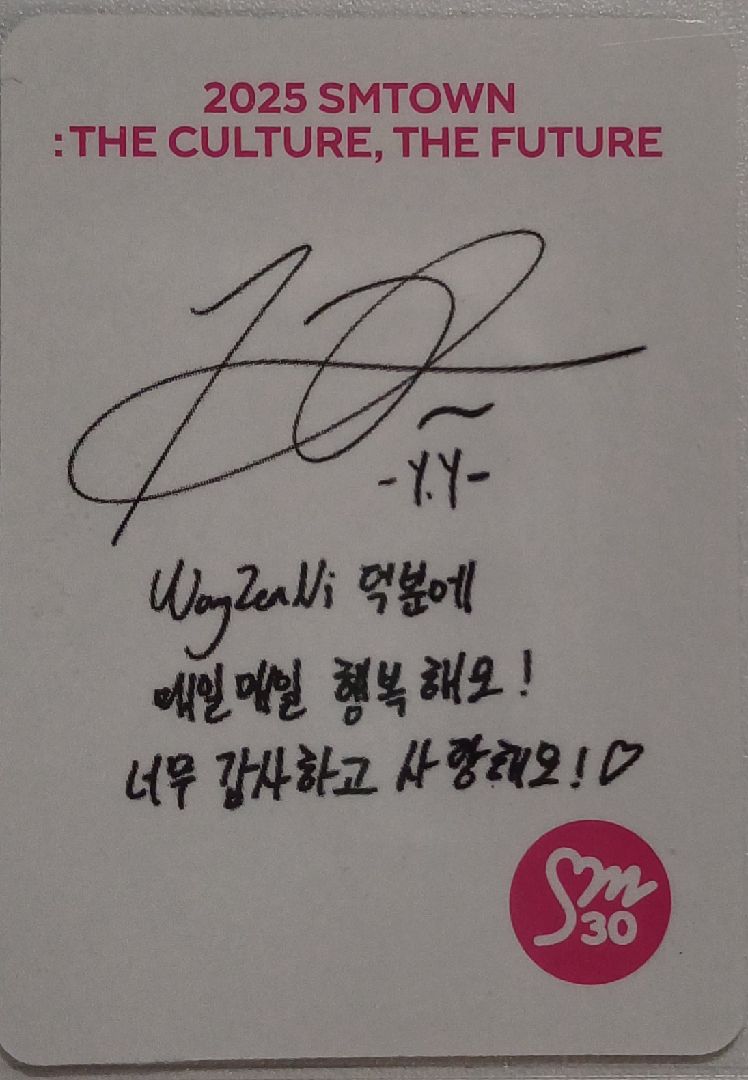 2025 SMTOWN
: THE CULTURE, THE FUTURE
-Y.Y-
WayZenNi 덕분에
매일매일 행복해요!
너무 감사하고 사랑해요!♡
Sm
30